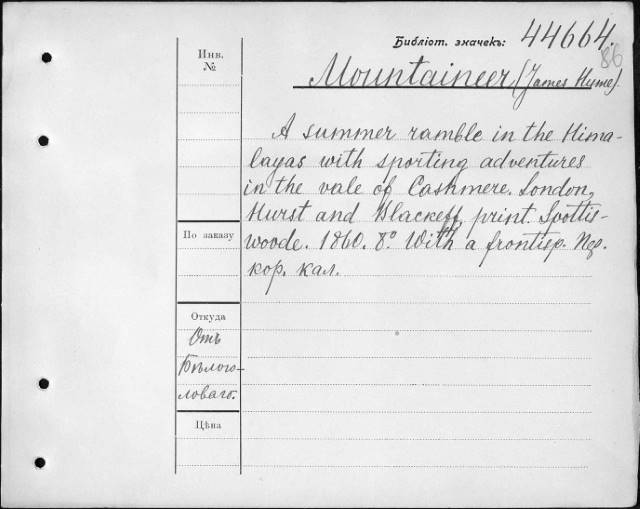 Библіот. значекъ: 44664.
86
Инв. №
Mountaineer (James Hume).
A summer ramble in the Hima-
layas with sporting adventures
in the vale of Cashmere. London,
Hurst and Blackett, print. Spottis-
woode. 1860. 8º. With a frontisp.
кор. кал.
По заказу
Откуда
Отъ
Бѣлого-
ловаго.
Цѣна